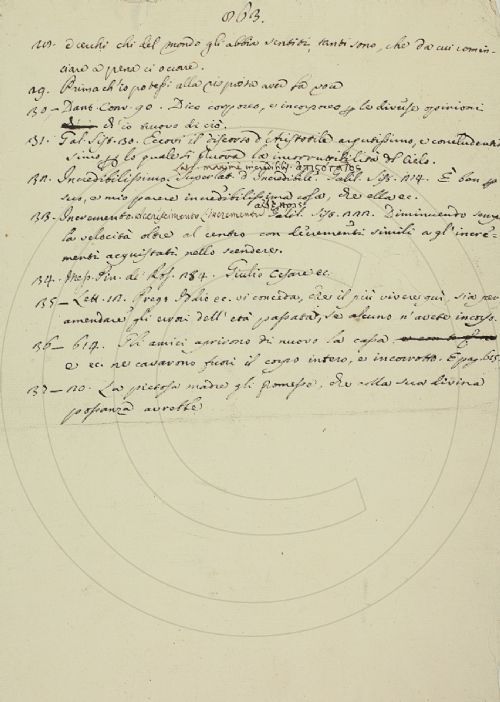 863.
d'occhi chi del mondo gli abbia sentiti, tanti sono, che da cui comin-
ciare a pena ci occore.
29. Prima ch'io potessi alla risposta aver la voce
30 — Dant. Conv. 90. Dico corporeo, e incorporeo per le diverse opinioni
ch'io truovo di ciò.
31. Gal. Sist. 30. Eccovi il discorso d'Aristotile acutissimo, e concludenti-
simo per lo quale si pruova la incorruttibilità del Cielo.
32. Incredibilissimo. Superlat. d'Incredibile. Galil. Sist. 214. È ben per
suo, e mio parere incredibilissima cosa, che ella ec.
33. Incremento. Accrescimento. Incrementum Galil. Sist. 222. Diminuendo sempre
la velocità oltre al centro con decrementi simili a gl'incre-
menti acquistati nello scendere.
34. 184. Giulio Cesare ec.
35 — Lett. 12. Prego Iddio ec. vi conceda, che il più vivere quì, sia per
amendare gli errori dell'età passata, se alcuno n'avete incorso.
36 — 614. Gli amici aprirono di nuovo la cassa
e ec. ne cavarono fuori il corpo intero, e incorrotto. E pag. 615.
37 — 20. La pietosa madre gli promesse, che alla sua divina
possanza avrebbe